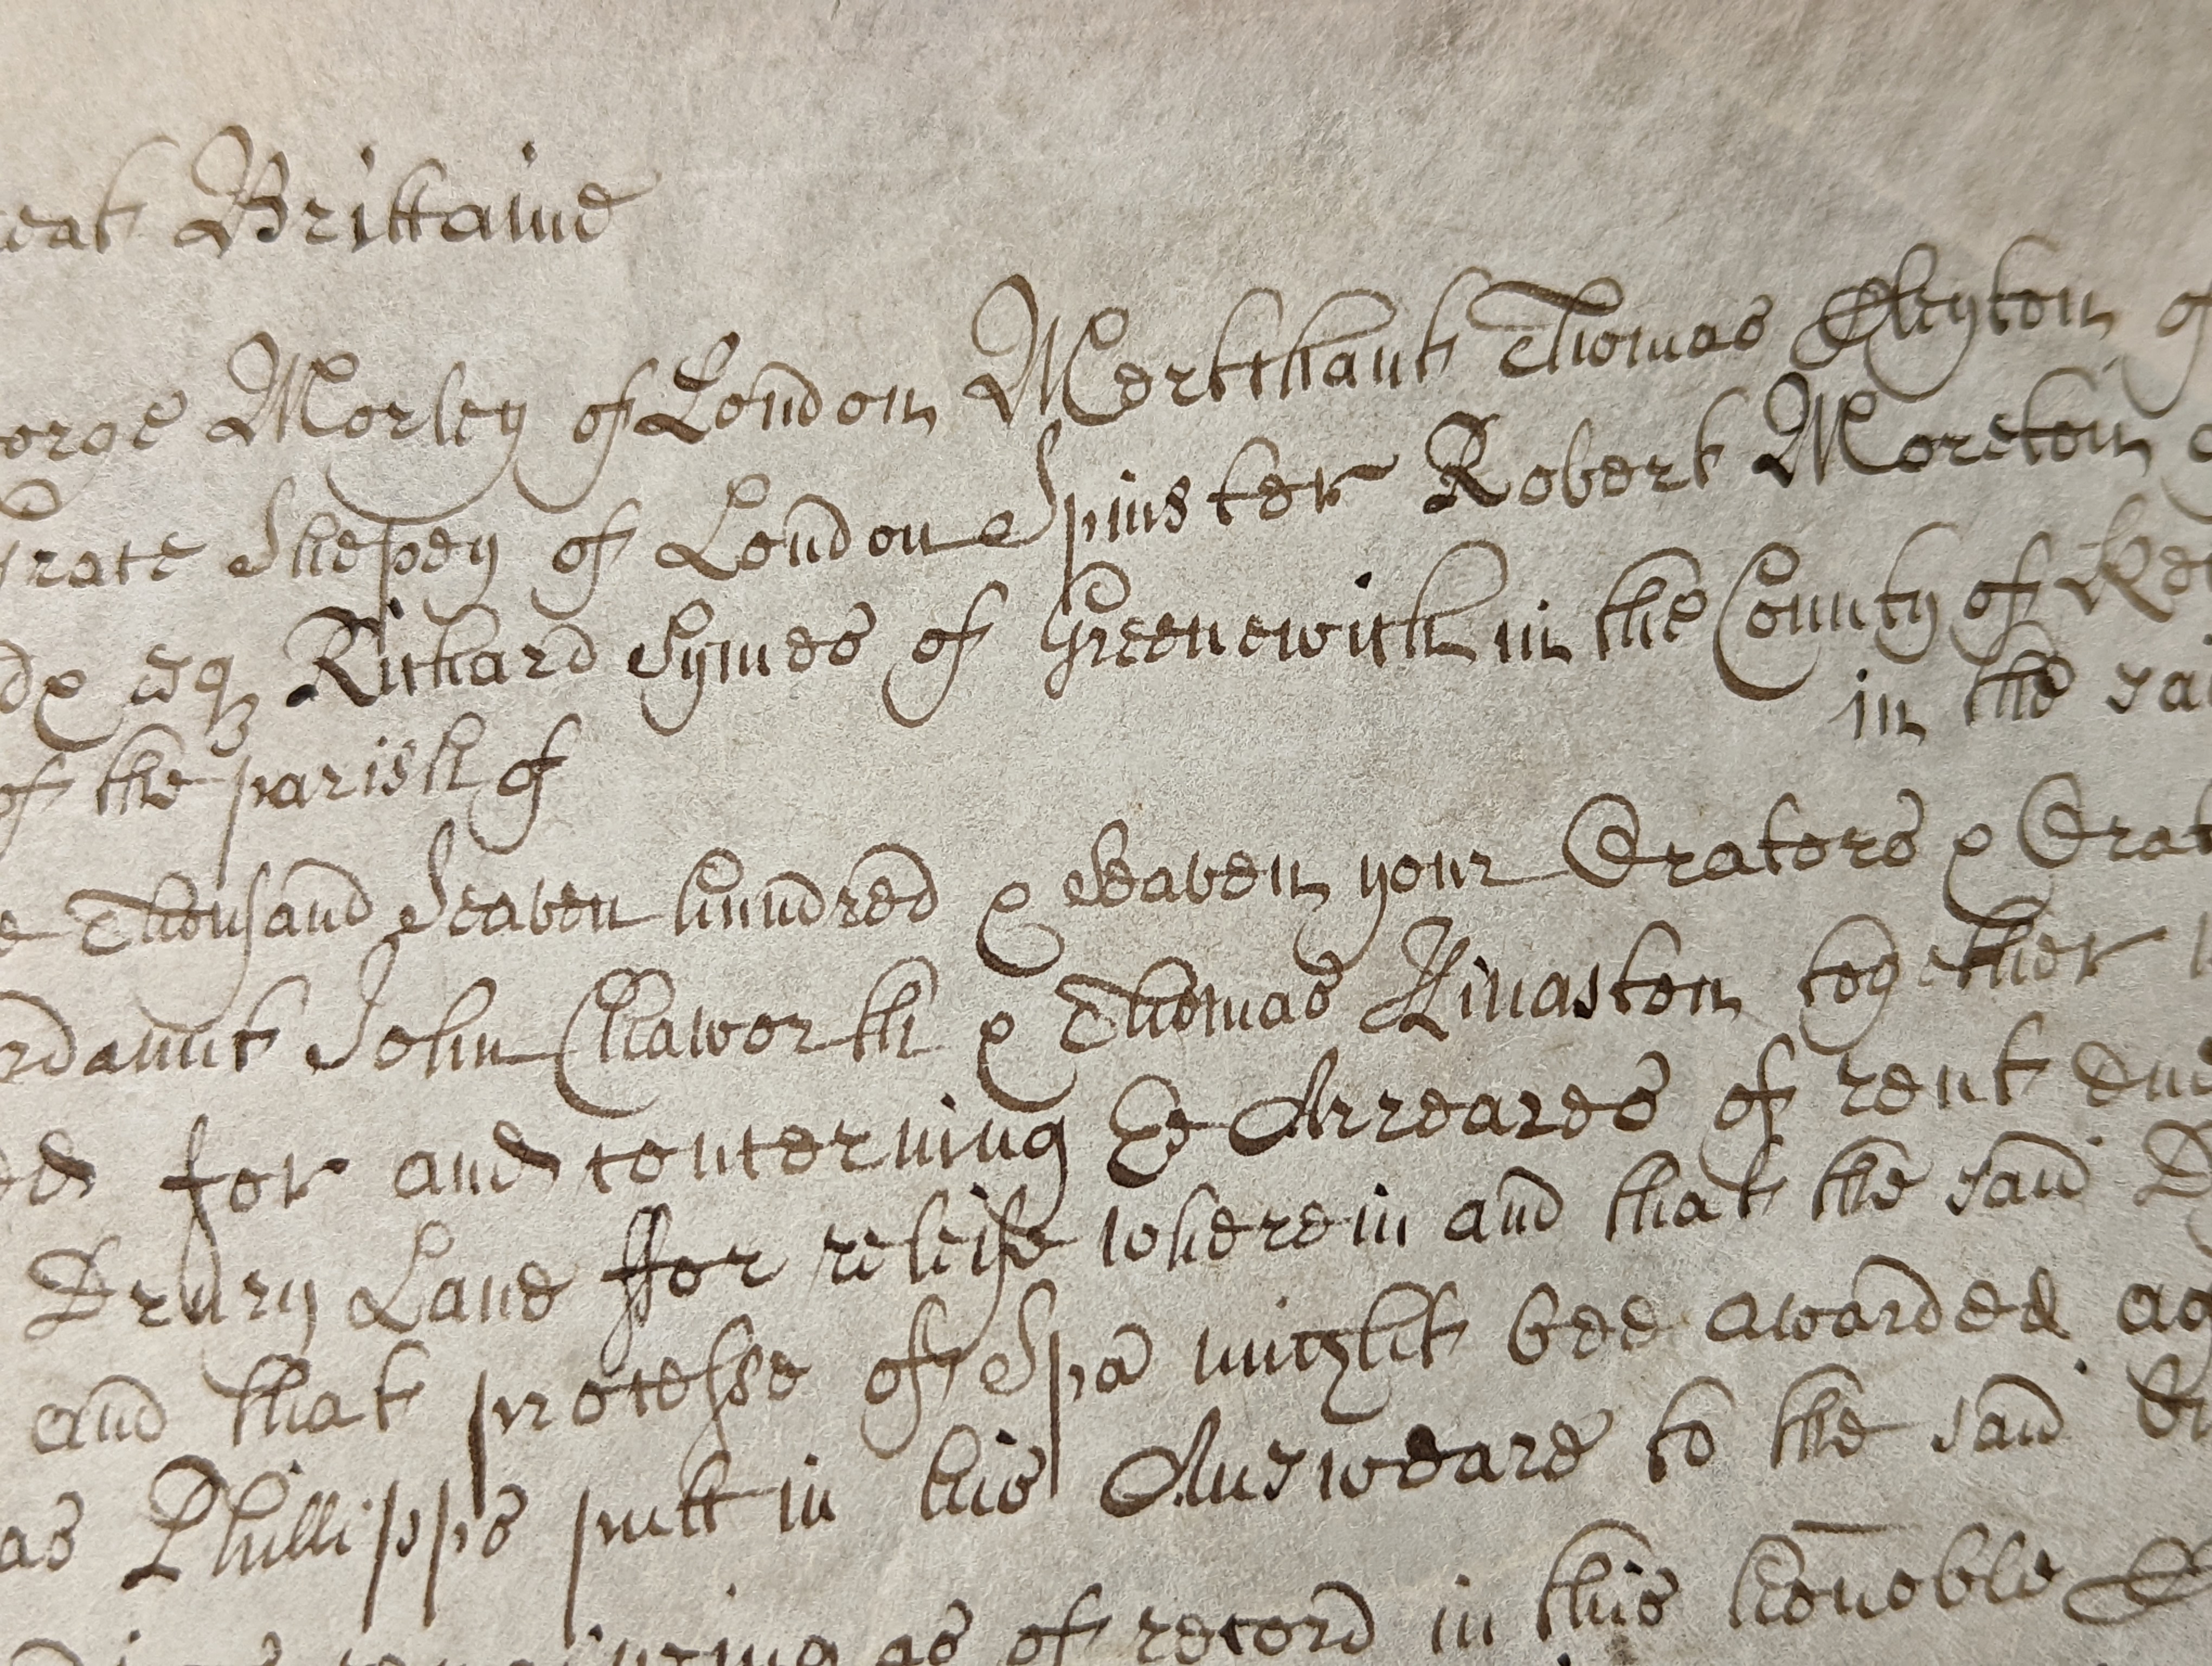 eat Brittaine
orge Morley of London Merchant Thomas Cleyton of
rate Shepey of London Spinster Robert Moreton
Esq Richard Symes of Greenewich in the County of Ke
of the parish of in the sai
Thousand Seaven hundred & Seaven your Orators & Orat
rdaunt John Chaworth & Thomas Kinaston together
ed for and concerning ye Arreares of rent due
Drury Lane ffor releife wherein and that the said D
and that processe of Spa might bee awarded ag
as Phillipps putt in his Answeare to the said Bi
as of record in this honoble